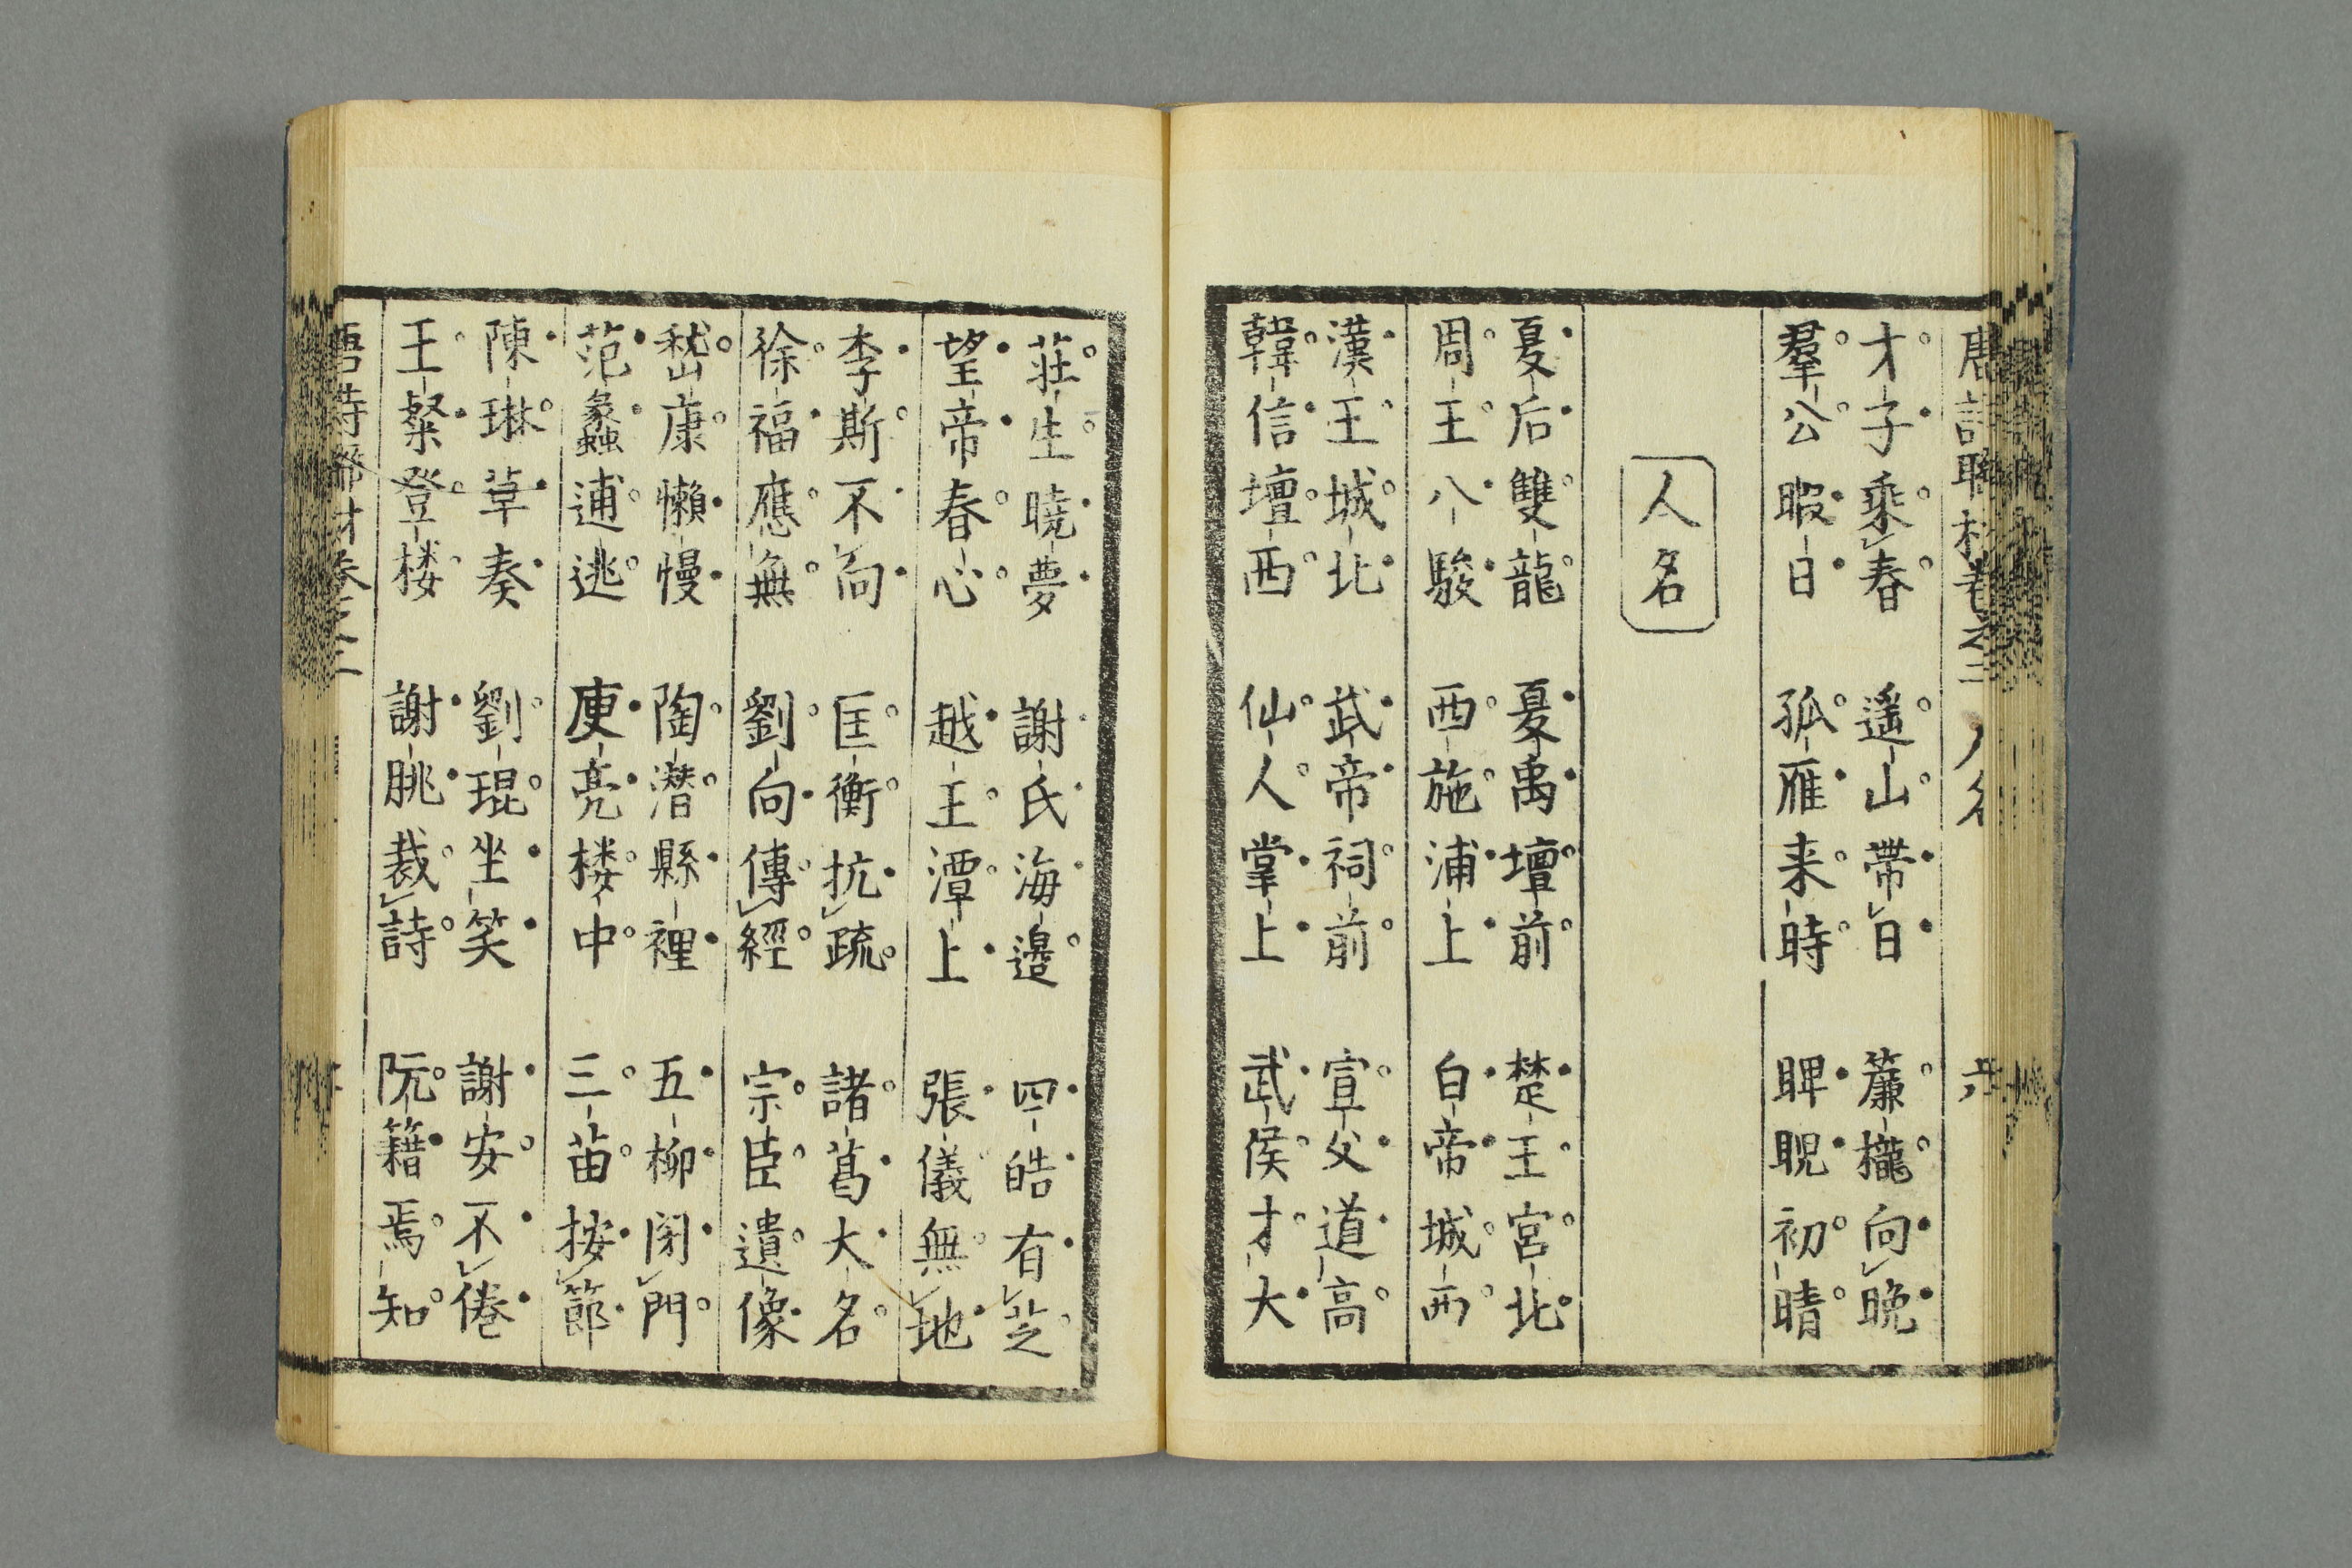 才子乗春 遥山帶日 簾櫳向晩
羣公暇日 孤雁来時 睥睨初晴
人名
夏后雙龍 夏禹壇前 楚王宮北
周王八駿 西施浦上 白帝城西
漢王城北 武帝祠前 宣父道高
韓信壇西 仙人掌上 武侯才大
荘生曉夢 謝氏海邉 四皓有芝
望帝春心 越王潭上 張儀無地
李斯不向 匡衡抗疏 諸葛大名
徐福應無 劉向傳經 宗臣遺像
嵇康懶慢 陶潜縣裡 五柳閉門
范蠡逋逃 庾亮楼中 三苗按節
陳琳草奏 劉琨坐笑 謝安不倦
王粲登楼 謝朓裁詩 阮籍焉知